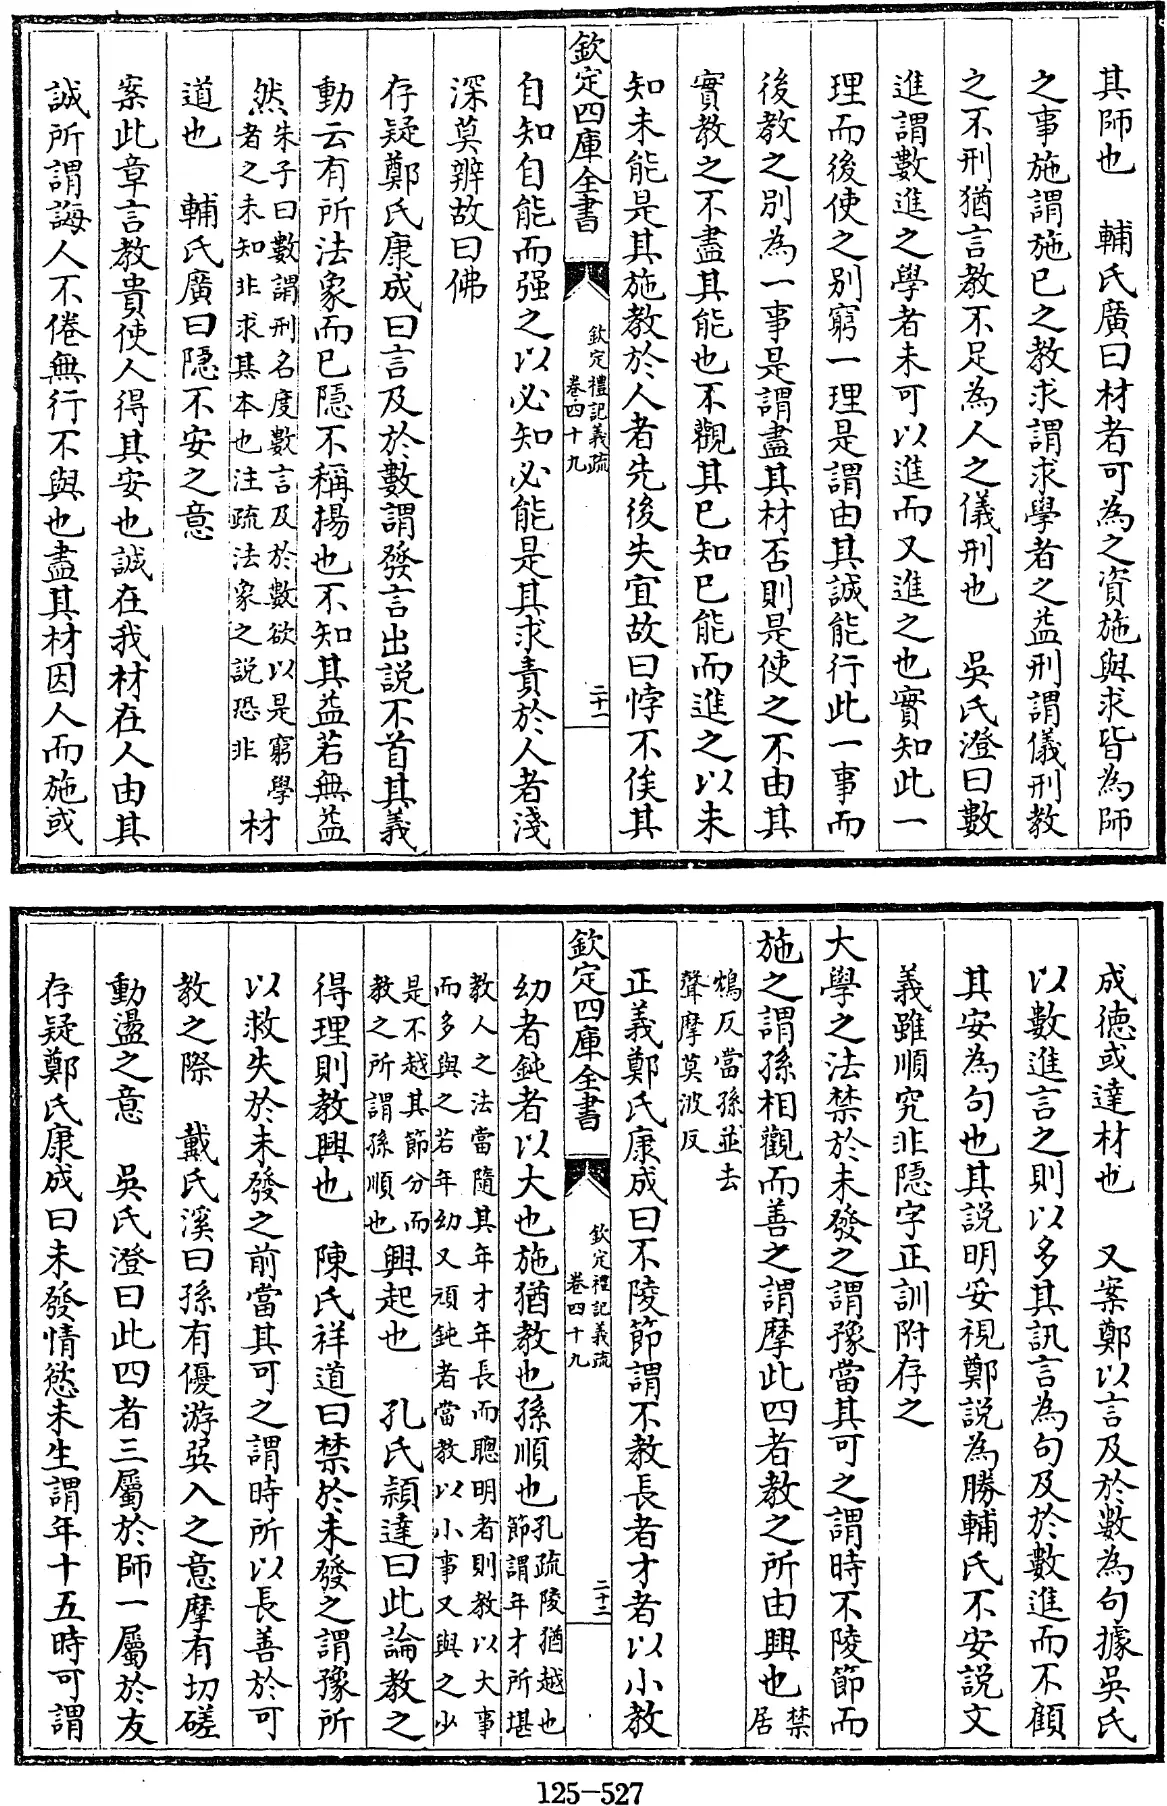 其師也　輔氏廣曰材者可為之資施與求皆為師
之事施謂施已之教求謂求學者之益刑謂儀刑教
之不刑猶言教不足為人之儀刑也　吳氏澄曰數
進謂數進之學者未可以進而又進之也實知此一
理而後使之别窮一理是謂由其誠能行此一事而
後教之别為一事是謂盡其材否則是使之不由其
實教之不盡其能也不觀其已知已能而進之以未
知未能是其施教於人者先後失宜故曰悖不俟其
欽定四庫全書
欽定禮記義疏
卷四十九
二十一
自知自能而强之以必知必能是其求責於人者淺
深莫辨故曰佛
存疑鄭氏康成曰言及於數謂發言出説不首其義
動云有所法象而已隱不稱揚也不知其益若無益
然朱子曰數謂刑名度數言及於數欲以是窮學
者之未知非求其本也注疏法象之説恐非
材
道也　輔氏廣曰隱不安之意
案此章言教貴使人得其安也誠在我材在人由其
誠所謂誨人不倦無行不與也盡其材因人而施或
成德或達材也　又案鄭以言及於數為句據吳氏
以數進言之則以多其訊言為句及於數進而不顧
其安為句也其説明妥視鄭説為勝輔氏不安説文
義雖順究非隱字正訓附存之
大學之法禁於未發之謂豫當其可之謂時不陵節而
施之謂孫相觀而善之謂摩此四者教之所由興也禁
居
鴆反當孫並去
聲摩莫波反
正義鄭氏康成曰不陵節謂不教長者才者以小教
欽定四庫全書
欽定禮記義疏
卷四十九
二十二
幼者鈍者以大也施猶教也孫順也孔疏陵猶越也
節謂年才所堪
教人之法當隨其年才年長而聰明者則教以大事
而多與之若年幼又頑鈍者當教以小事又與之少
是不越其節分而
教之所謂孫順也
興起也　孔氏穎達曰此論教之
得理則教興也　陳氏祥道曰禁於未發之謂豫所
以救失於未發之前當其可之謂時所以長善於可
教之際　戴氏溪曰孫有優游巽入之意摩有切磋
動盪之意　吳氏澄曰此四者三屬於師一屬於友
存疑鄭氏康成曰未發情慾未生謂年十五時可謂
125-527